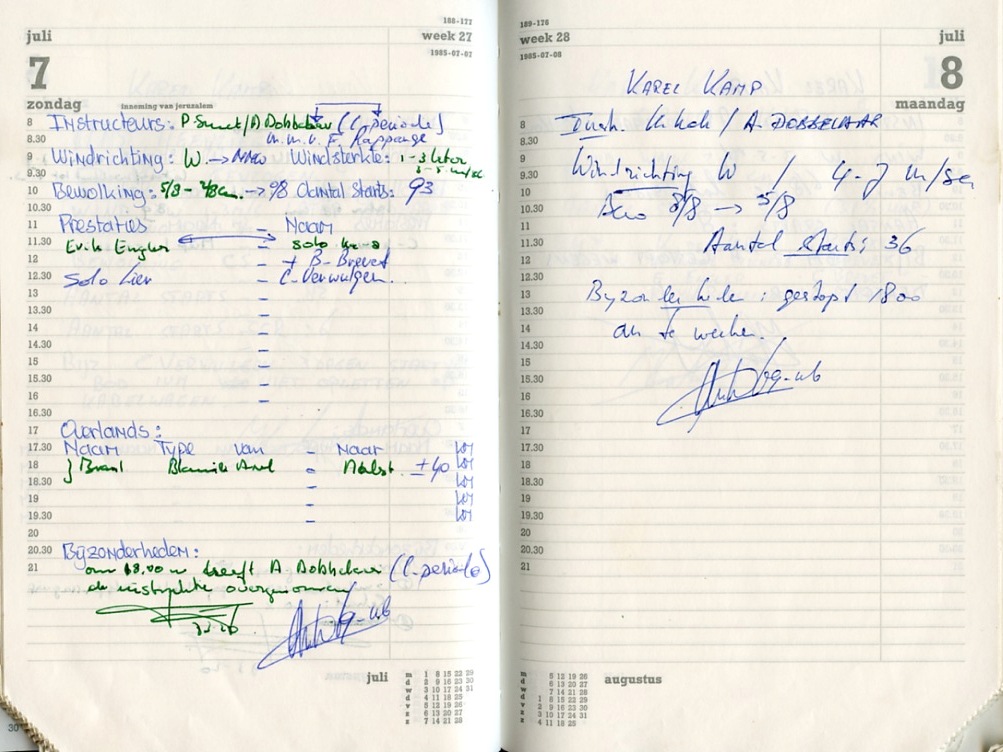 188-177
juli
week 27
1985-07-07
7
zondag
inneming van jeruzalem
8 Instructeurs: P Smeet/A Dobbelaar (C. periode)
8.30 m.m.v. F. Kappange
9 Windrichting: W → NNW Windsterkte: 1-3 
9.30
10 Bewolking: 5/8 - → 7/8 Aantal starts: 93
10.30
11 Prestaties - Naam
11.30 Erik Engler - solo
12 - + B-Brevet
12.30 Solo Lier - C. Verwulgen.
13 -
13.30 -
14 -
14.30 -
15 -
15.30 -
16 -
16.30
17 Overlands:
17.30 Naam Type van - Naar KM
18 J Brasl - ± 40 KM
18.30 - KM
19 - KM
19.30 - KM
20
20.30 Bijzonderheden:
21 om 18.00 u heeft A Dobbelaar (C. periode)
de overgenomen
juli
m 1 8 15 22 29
d 2 9 16 23 30
w 3 10 17 24 31
d 4 11 18 25
v 5 12 19 26
z 6 13 20 27
z 7 14 21 28
30
189-176
week 28
juli
1985-07-08
8
maandag
KAREL KAMP
8 Instr. K. Kok / A. DOBBELAAR
8.30
9 Windrichting W / 4-7 m/sec
9.30
10 Bew 8/8 → 5/8
10.30
11
11.30 Aantal starts: 36
12
12.30
13 Byzonderheden: gestopt 1800
13.30
14 om te werken.
14.30
15
15.30
16
16.30
17
17.30
18
18.30
19
19.30
20
20.30
21
augustus
m 5 12 19 26
d 6 13 20 27
w 7 14 21 28
d 1 8 15 22 29
v 2 9 16 23 30
z 3 10 17 24 31
z 4 11 18 25